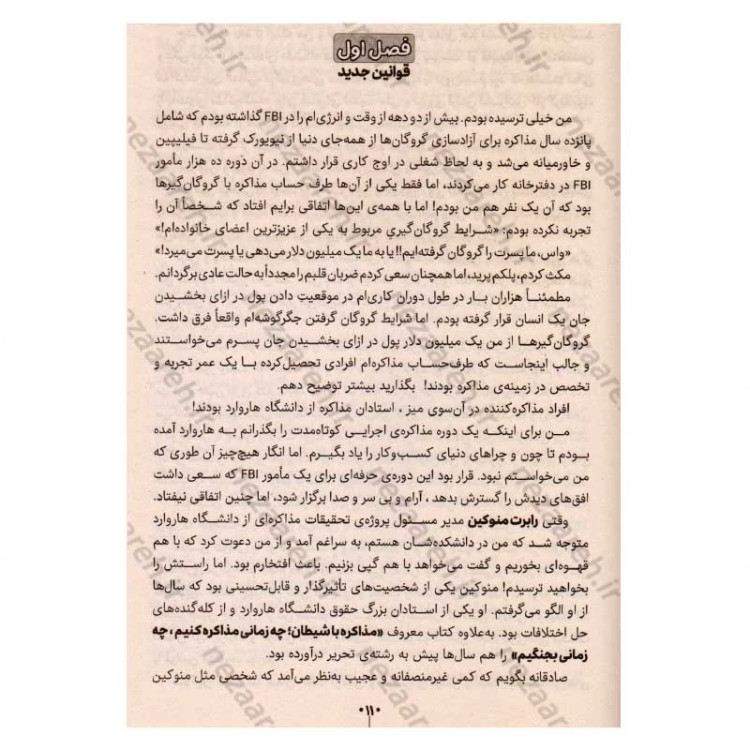 فصل اول
قوانین جدید
من خیلی ترسیده بودم. بیش از دو دهه از وقت و انرژی‌ام را در FBI گذاشته بودم که شامل
پانزده سال مذاکره برای آزادسازی گروگان‌ها از همه‌جای دنیا از نیویورک گرفته تا فیلیپین
و خاورمیانه می‌شد و به لحاظ شغلی در اوج کاری قرار داشتم. در آن دوره ده هزار مأمور
FBI در دفترخانه کار می‌کردند، اما فقط یکی از آن‌ها طرف حساب مذاکره با گروگان‌گیرها
بود که آن یک نفر هم من بودم! اما با همه‌ی این‌ها اتفاقی برایم افتاد که شخصاً آن را
تجربه نکرده بودم: «شرایط گروگان‌گیریِ مربوط به یکی از عزیزترین اعضای خانواده‌ام!»
«واس، ما پسرت را گروگان گرفته‌ایم!! یا به ما یک میلیون دلار می‌دهی یا پسرت می‌میرد!»
مکث کردم، پلکم پرید، اما همچنان سعی کردم ضربان قلبم را مجدداً به حالت عادی برگردانم.
مطمئناً هزاران بار در طول دوران کاری‌ام در موقعیتِ دادن پول در ازای بخشیدن
جان یک انسان قرار گرفته بودم. اما شرایط گروگان گرفتن جگرگوشه‌ام واقعاً فرق داشت.
گروگان‌گیرها از من یک میلیون دلار پول در ازای بخشیدن جان پسرم می‌خواستند
و جالب اینجاست که طرف‌حساب مذاکره‌ام افرادی تحصیل‌کرده با یک عمر تجربه و
تخصص در زمینه‌ی مذاکره بودند! بگذارید بیشتر توضیح دهم.
افراد مذاکره‌کننده در آن‌سوی میز، استادان مذاکره از دانشگاه هاروارد بودند!
من برای اینکه یک دوره مذاکره‌ی اجرایی کوتاه‌مدت را بگذرانم به هاروارد آمده
بودم تا چون و چراهای دنیای کسب‌وکار را یاد بگیرم. اما انگار هیچ‌چیز آن طوری که
من می‌خواستم نبود. قرار بود این دوره‌ی حرفه‌ای برای یک مأمور FBI که سعی داشت
افق‌های دیدش را گسترش بدهد، آرام و بی سر و صدا برگزار شود، اما چنین اتفاقی نیفتاد.
وقتی رابرت منوکین مدیر مسئول پروژه‌ی تحقیقات مذاکره‌ای از دانشگاه هاروارد
متوجه شد که من در دانشکده‌شان هستم، به سراغم آمد و از من دعوت کرد که با هم
قهوه‌ای بخوریم و گفت می‌خواهد با هم گپی بزنیم. باعث افتخارم بود. اما راستش را
بخواهید ترسیدم! منوکین یکی از شخصیت‌های تأثیرگذار و قابل‌تحسینی بود که سال‌ها
از او الگو می‌گرفتم. او یکی از استادان بزرگ حقوق دانشگاه هاروارد و از کله‌گنده‌های
حل اختلافات بود. به‌علاوه کتاب معروف «مذاکره با شیطان؛ چه زمانی مذاکره کنیم، چه
زمانی بجنگیم» را هم سال‌ها پیش به رشته‌ی تحریر درآورده بود.
صادقانه بگویم که کمی غیرمنصفانه و عجیب به‌نظر می‌آمد که شخصی مثل منوکین
۱۱
nezaareh.ir